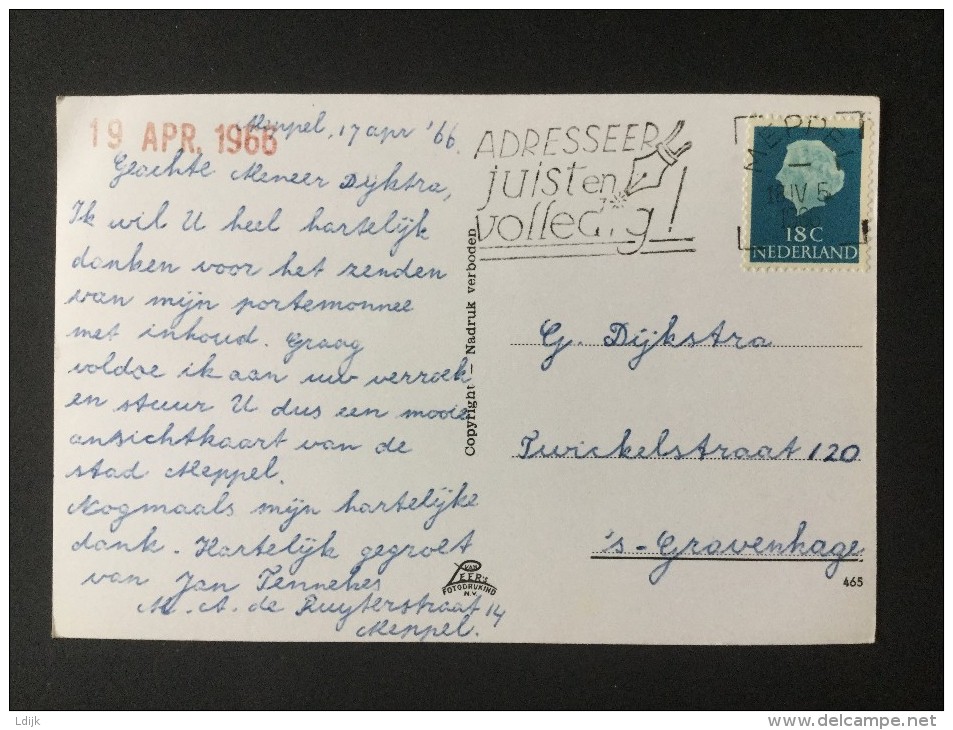 19 APR. 1966
Meppel, 17 apr '66.
Geachte Meneer Dijkstra,
Ik wil U heel hartelijk
danken voor het zenden
van mijn portemonnee
met inhoud. Graag
voldoe ik aan uw verzoek
en stuur U dus een mooie
ansichtkaart van de
stad Meppel.
Nogmaals mijn hartelijke
dank. Hartelijk gegroet
van Jan Tennekes
M. A. de Ruyterstraat 14
Meppel.
Copyright - Nadruk verboden
VAN
LEER's
FOTODRUKIND
N.V.
ADRESSEER
juist en
volledig!
MEPPEL
18 IV 6
18C
NEDERLAND
G. Dijkstra
Twickelstraat 120
's-Gravenhage
465
Ldijk
delcampe.net